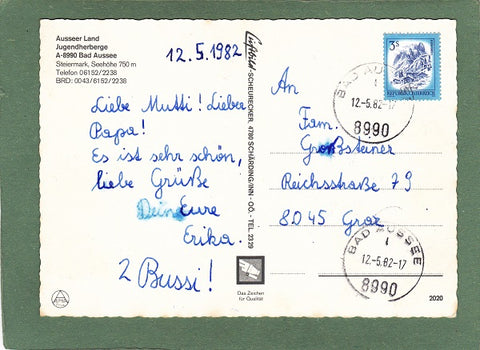 Ausseer Land
Jugendherberge
A-8990 Bad Aussee
Steiermark, Seehöhe 750 m
Telefon 06152/2238
BRD: 0043/6152/2238
12.5.1982
Liebe Mutti! Lieber
Papa!
Es ist sehr schön,
liebe Grüße
Deine Eure
Erika.
2 Bussi!
Luftbild-SCHEURECKER, 4780 SCHÄRDING/INN - OÖ. - TEL 2329
Das Zeichen
für Qualität
3S
REPUBLIK ÖSTERREICH
BAD AUSSEE
12.-5.82-17
8990
An
Fam.
Großsteiner
Reichsstraße 79
8045 Graz
BAD AUSSEE
12.-5.82-17
8990
2020